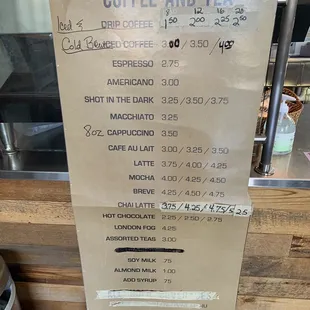 COFFEE AND TEA
8 12 16 20
DRIP COFFEE 1.50 2.00 2.25 2.50
Iced &
Cold Brew ICED COFFEE 3.00 / 3.50 / 4.00
ESPRESSO 2.75
AMERICANO 3.00
SHOT IN THE DARK 3.25 / 3.50 / 3.75
MACCHIATO 3.25
8oz CAPPUCCINO 3.50
CAFE AU LAIT 3.00 / 3.25 / 3.50
LATTE 3.75 / 4.00 / 4.25
MOCHA 4.00 / 4.25 / 4.50
BREVE 4.25 / 4.50 / 4.75
CHAI LATTE 3.75 / 4.25 / 4.75 / 5.25
HOT CHOCOLATE 2.25 / 2.50 / 2.75
LONDON FOG 4.25
ASSORTED TEAS 3.00
SOY MILK .75
ALMOND MILK 1.00
ADD SYRUP .75